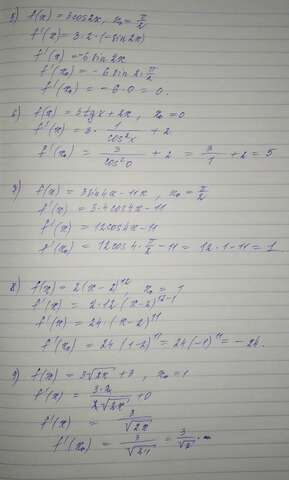 5) f(x) = 3cos2x, x₀ = π/2
f'(x) = 3·2·(-sin2x)
f'(x) = -6sin2x
f'(x₀) = -6sin2·π/2
f'(x₀) = -6·0 = 0.
6) f(x) = 3tgx + 2x, x₀ = 0
f'(x) = 3· 1/cos²x + 2
f'(x₀) = 3/cos²0 + 2 = 3/1 + 2 = 5
7) f(x) = 3sin4x - 11x, x₀ = π/2
f'(x) = 3·4cos4x - 11
f'(x) = 12cos4x - 11
f'(x₀) = 12cos4·π/2 - 11 = 12·1 - 11 = 1
8) f(x) = 2(x-2)¹² x₀ = 1
f'(x) = 2·12(x-2)¹²⁻¹
f'(x) = 24·(x-2)¹¹
f'(x₀) = 24(1-2)¹¹ = 24(-1)¹¹ = -24.
9) f(x) = 3√2x + 3, x₀ = 1
f'(x) = 3·2/2√2x + 0
f'(x) = 3/√2x
f'(x₀) = 3/√2·1 = 3/√2